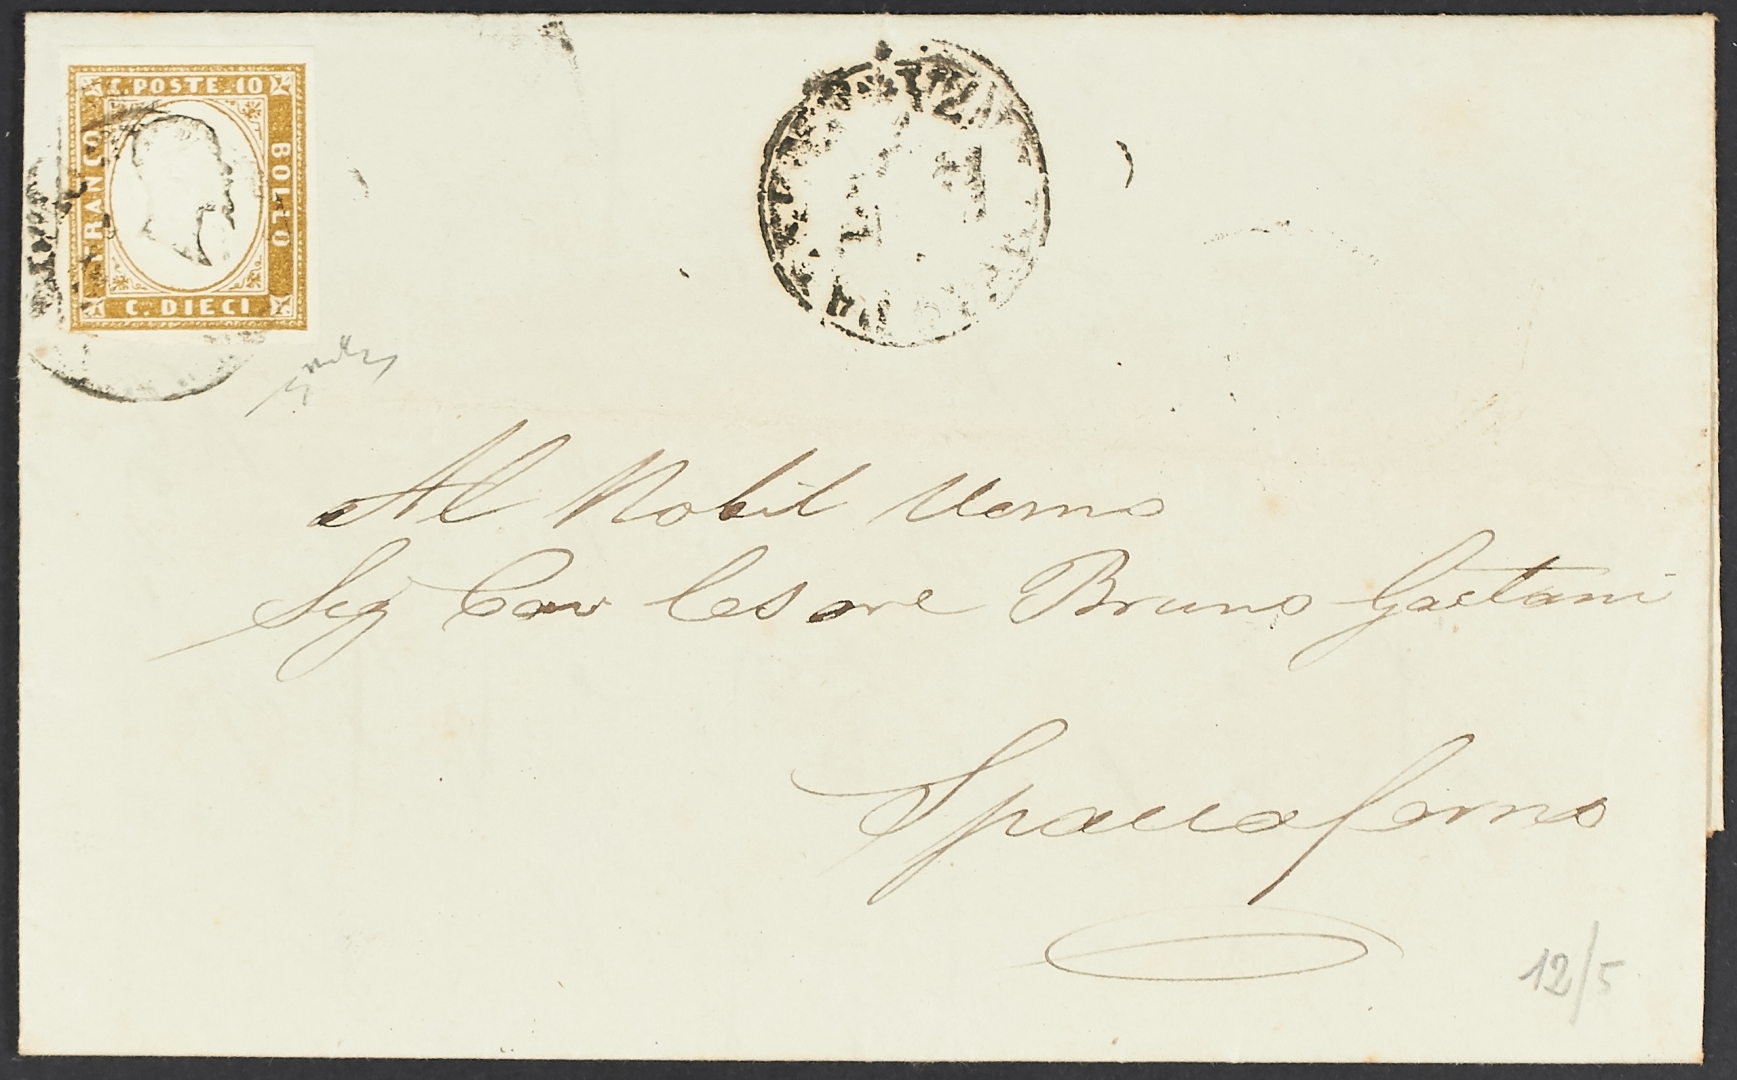 C. POSTE. 10
FRANCO
BOLLO
C. DIECI
Al Nobil Uomo
Sig Cav Cesare Bruno Gaetani
Spaccaforno
12/5